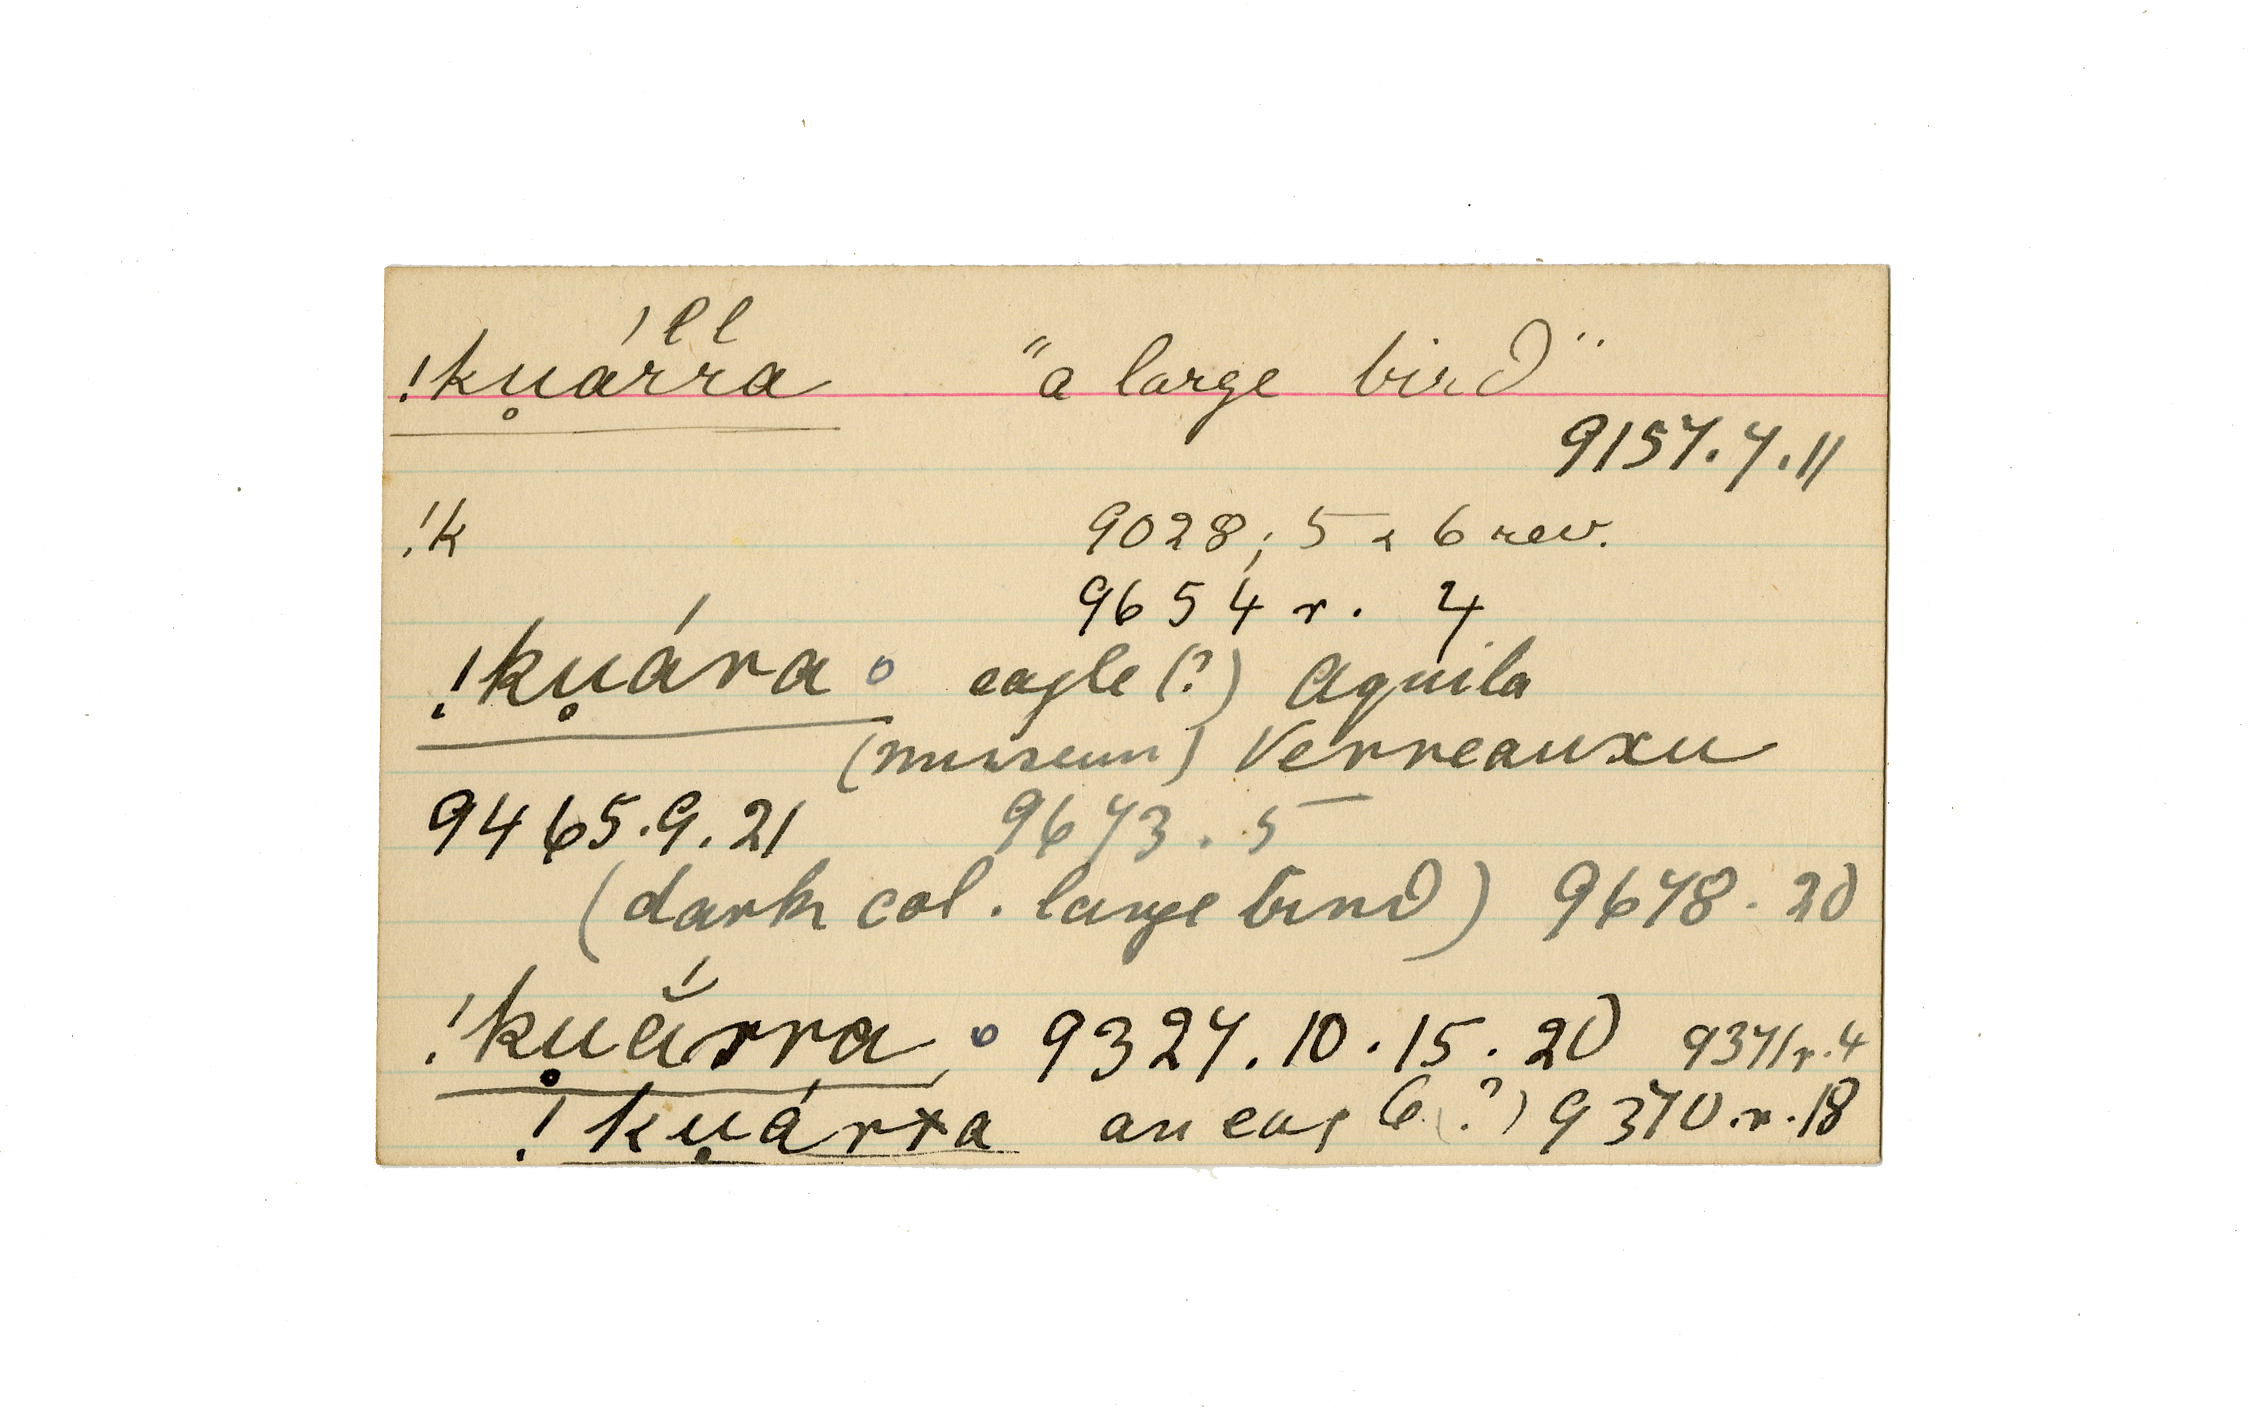 ll
!kṷárra "a large bird"
9157.7.11
!k 9028; 5 & 6 rev.
9654 r. 4
!kṷára o eagle (?) Aquila
(museum) Verreauxii
9465.9.21 9673.5
(dark col. large bird) 9678.20
!kṷắrra, o 9327.10.15.20 9371 r.4
!kṷárra an eag (?) 9370.r.18